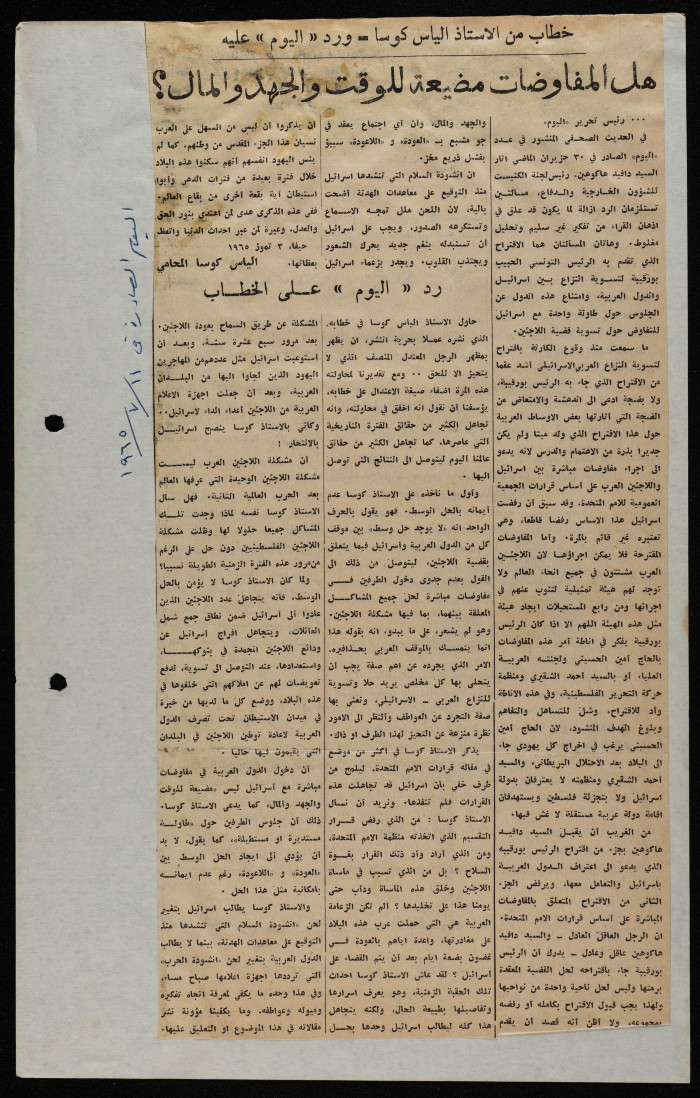 خطاب من الاستاذ الياس كوسا = ورد « اليوم » عليه
هل المفاوضات مضيعة للوقت والجهد والمال؟
٠٠٠ رئيس تحرير «اليوم»
في الحديث الصحفي المنشور في عدد
«اليوم» الصادر في ٣٠ حزيران الماضي اثار
السيد دافيد هاكوهين، رئيس لجنة الكنيست
للشؤون الخارجية والدفاع، مسألتين
تستلزمان الرد ازالة لما يكون قد علق في
اذهان القراء من تفكير غير سليم وتحليل
مغلوط. وهاتان المسألتان هما الاقتراح
الذي تقدم به الرئيس التونسي الحبيب
بورقيبة لتسوية النزاع بين اسرائيل
والدول العربية، وامتناع هذه الدول عن
الجلوس حول طاولة واحدة مع اسرائيل
للتفاوض حول تسوية قضية اللاجئين.
ما سمعت منذ وقوع الكارثة باقتراح
لتسوية النزاع العربي الاسرائيلي أشد عقما
من الاقتراح الذي جاء به الرئيس بورقيبة،
ولا بضجة ادعى الى الدهشة والامتعاض من
الضجة التي أثارتها بعض الاوساط العربية
حول هذا الاقتراح الذي ولد ميتا ولم يكن
جديرا بذرة من الاهتمام والدرس لانه يدعو
الى اجراء مفاوضات مباشرة بين اسرائيل
واللاجئين العرب على أساس قرارات الجمعية
العمومية للامم المتحدة. وقد سبق أن رفضت
اسرائيل هذا الاساس رفضا قاطعا، وهي
تعتبره غير قائم بالمرة. وأما المفاوضات
المقترحة فلا يمكن اجراؤها لان اللاجئين
العرب مشتتون في جميع انحاء العالم ولا
توجد لهم هيئة تمثيلية لتنوب عنهم في
اجرائها ومن رابع المستحيلات ايجاد هيئة
مثل هذه الهيئة اللهم الا اذا كان الرئيس
بورقيبة يفكر في اناطة أمر هذه المفاوضات
بالحاج أمين الحسيني ولجنته العربية
العليا، أو بالسيد أحمد الشقيري ومنظمة
حركة التحرير الفلسطينية، وفي هذه الاناطة
وأد للاقتراح، وشل للتساهل والتفاهم
وبلوغ الهدف المنشود، لان الحاج أمين
الحسيني يرغب في اخراج كل يهودي جاء
الى البلاد بعد الاحتلال البريطاني، والسيد
أحمد الشقيري ومنظمته لا يعترفان بدولة
اسرائيل ولا بتجزئة فلسطين ويستهدفان
اقامة دولة عربية مستقلة لا غش فيها.
من الغريب أن يقبل السيد دافيد
هاكوهين بجزء من اقتراح الرئيس بورقيبه
الذي يدعو الى اعتراف الدول العربية
باسرائيل والتعامل معها، ويرفض الجزء
الثاني من الاقتراح المتعلق بالمفاوضات
المباشرة على أساس قرارات الامم المتحدة.
ان الرجل العاقل العادل ــ والسيد دافيد
هاكوهين عاقل وعادل ــ يدرك ان الرئيس
بورقيبة جاء باقتراحه لحل القضية المعقدة
برمتها وليس لحل ناحية واحدة من نواحيها
ولهذا يجب قبول الاقتراح بكامله أو رفضه
بمجموعه، ولا أظن أنه قصد أن يقدم
والجهد والمال، وأن أي اجتماع يعقد في
جو مشبع بـ «العودة» و «اللاعودة» سيبؤ
بفشل ذريع مخز.
ان انشودة السلام التي تنشدها اسرائيل
منذ التوقيع على معاهدات الهدنة أضحت
بالية، لان اللحن ملل تمجه الاسماع
وتستكرهه الصدور، ويجب على اسرائيل
أن تستبدله بنغم جديد يحرك الشعور
ويجتذب القلوب. ويجدر بزعماء اسرائيل
أن يذكروا أن ليس من السهل على العرب
نسيان هذا الجزء المقدس من وطنهم، كما لم
ينس اليهود انفسهم أنهم سكنوا هذه البلاد
خلال فترة بعيدة من فترات الدهر وأبوا
استيطان أية بقعة أخرى من بقاع العالم.
ففي هذه الذكرى هدى لمن اهتدى بنور الحق
والعدل، وعبرة لمن عبر احداث الدنيا واتعظ
بعظاتها.
حيفا، ٣ تموز ١٩٦٥
الياس كوسا المحامي
رد « اليوم » على الخطاب
حاول الاستاذ الياس كوسا في خطابه،
الذي نشره عملا بحرية النشر، ان يظهر
بمظهر الرجل المعتدل المنصف الذي لا
يتحيز الا للحق ٠٠ ومع تقديرنا لمحاولته
هذه المرة اضفاء صبغة الاعتدال على خطابه،
يؤسفنا أن نقول انه اخفق في محاولته، وانه
تجاهل الكثير من حقائق الفترة التاريخية
التي عاصرها، كما تجاهل الكثير من حقائق
عالمنا اليوم ليتوصل الى النتائج التي توصل
اليها.
وأول ما نأخذه على الاستاذ كوسا عدم
أيمانه بالحل الوسط، فهو يقول بالحرف
الواحد انه «لا يوجد حل وسط» بين موقف
كل من الدول العربية واسرائيل فيما يتعلق
بقضية اللاجئين، ليتوصل من ذلك الى
القول بعدم جدوى دخول الطرفين في
مفاوضات مباشرة لحل جميع المشاكل
المعلقة بينهما، بما فيها مشكلة اللاجئين.
وهو لم يشعر، على ما يبدو، انه بقوله هذا
انما يتمسك بالموقف العربي بحذافيره،
الامر الذي يجرده عن اهم صفة يجب ان
يتحلى بها كل مخلص يريد حلا وتسوية
للنزاع العربي ــ الاسرائيلي، ونعني بها
صفة التجرد عن العواطف والنظر الى الامور
نظرة منزهة عن التحيز لهذا الطرف او ذاك.
يذكر الاستاذ كوسا في اكثر من موضع
في مقاله قرارات الامم المتحدة، ليلمح من
طرف خفي بأن اسرائيل قد تجاهلت هذه
القرارات فلم تنفذها. ونريد أن نسأل
الاستاذ كوسا : من الذي رفض قرار
التقسيم الذي اتخذته منظمة الامم المتحدة،
ومن الذي أراد وأد ذلك القرار بقوة
السلاح ؟ بل من الذي تسبب في مأساة
اللاجئين وخلق هذه المأساة ودأب حتى
يومنا هذا على تخليدها ؟ ألم تكن الزعامة
العربية هي التي حملت عرب هذه البلاد
على مغادرتها، واعدة اياهم بالعودة في
غضون بضعة ايام بعد أن يتم القضاء على
اسرائيل ؟ لقد عاش الاستاذ كوسا احداث
تلك الحقبة الزمنية، وهو يعرف أسرارها
وتفاصيلها بطبيعة الحال، ولكنه يتجاهل
هذا كله ليطالب اسرائيل وحدها بحل
المشكلة عن طريق السماح بعودة اللاجئين،
بعد مرور سبع عشرة سنة، وبعد أن
استوعبت اسرائيل مثل عددهم من المهاجرين
اليهود الذين لجأوا اليها من البلدان
العربية، وبعد أن جعلت اجهزة الاعلام
العربية من اللاجئين أعداء الداء لاسرائيل٠٠
وكأني بالاستاذ كوسا ينصح اسرائيل
بالانتحار !
أن مشكلة اللاجئين العرب ليست
مشكلة اللاجئين الوحيدة التي عرفها العالم
بعد الحرب العالمية الثانية. فهل سأل
الاستاذ كوسا نفسه لماذا وجدت تلك
المشاكل جميعا حلولا لها وظلت مشكلة
اللاجئين الفلسطينيين دون حل على الرغم
من مرور هذه الفترة الزمنية الطويلة نسبيا؟
ولما كان الاستاذ كوسا لا يؤمن بالحل
الوسط، فانه يتجاهل عدد اللاجئين الذين
عادوا الى أسرائيل ضمن نطاق جمع شمل
العائلات، ويتجاهل افراج اسرائيل عن
ودائع اللاجئين المجمدة في بنوكها،
واستعدادها، عند التوصل الى تسوية، لدفع
تعويضات لهم عن املاكهم التي خلفوها في
هذه البلاد، ووضع كل ما لديها من خبرة
في ميدان الاستيطان تحت تصرف الدول
العربية لاعادة توطين اللاجئين في البلدان
التي يقيمون فيها حاليا.
أن دخول الدول العربية في مفاوضات
مباشرة مع أسرائيل ليس «مضيعة للوقت
والجهد والمال» كما يدعي الاستاذ كوسا،
ذلك أن جلوس الطرفين حول «طاولة
مستديرة او مستطيلة»، كما يقول، لا بد
أن يؤدي ألى ايجاد الحل الوسط بين
«العودة» و «اللاعودة» رغم عدم ايمانه
بامكانية مثل هذا الحل.
والاستاذ كوسا يطالب اسرائيل بتغيير
لحن «انشودة السلام التي تنشدها منذ
التوقيع على معاهدات الهدنة»، بينما لا يطالب
الدول العربية بتغيير لحن «انشودة الحرب»
التي ترددها اجهزة اعلامها صباح مساء،
وفي هذا وحده ما يكفي لمعرفة اتجاه تفكيره
وميوله وعواطفه، وما يكفينا مؤونة نشر
مقالاته في هذا الموضوع او التعليق عليها.
اليوم الصادرة في ١١/٧/١٩٦٥